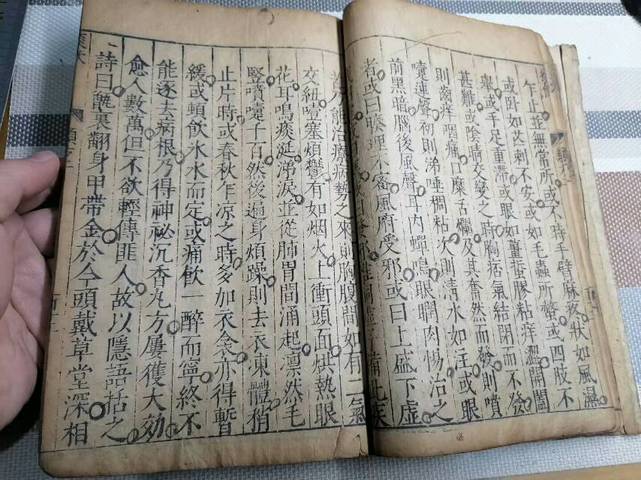 乍止至無常所或不時手臂麻疼狀如風濕
或臥如芒刺不安或如毛蟲所螫或四肢不
舉或手足重滯或眼如薑蟄膠粘痒澀開闔
甚難或陰晴交變之時胸痞氣結閉而不發
則齒痒咽痛口糜舌爛及其奮然而發則噴
嚏連聲初則涕唾稠粘次則清水如注或眼
前黑暗腦後風聲耳內蟬鳴眼瞤肉惕治之
者或曰腠理不密風府受邪或曰上盛下虛
備此疾
治療病勢之來則胸腹間如有二氣
交紐噎塞煩鬱有如烟火上衝頭面烘熱眼
花耳鳴痰涎涕淚並從肺胃間湧起凜然毛
竪噴嚏千百然後遍身煩躁則去衣凍體稍
止片時或春秋乍凉之時多加衣衾亦得暫
緩或頓飲冰水而定或痛飲一醉而寧終不
能逐去病根乃得神祕沉香丸方屢獲大効
愈人數萬但不欲輕傳匪人故以隱語括之
詩曰甑裏翻身甲帶金於今頭戴草堂深相